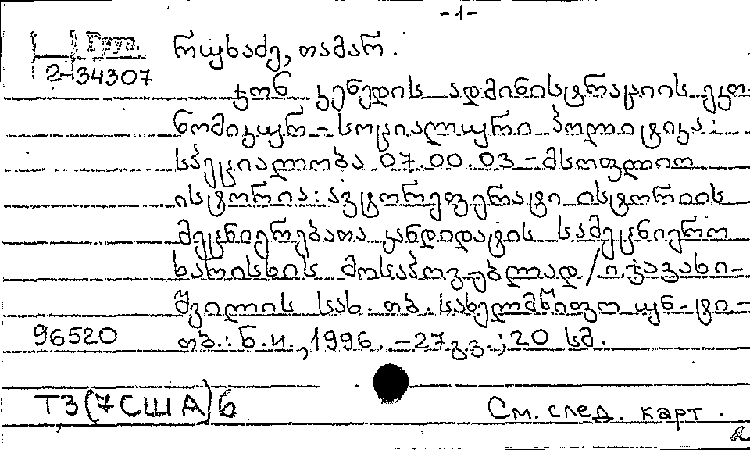 -1-
Груз.
2-34307
რიუხაძე, თამარ.
ჯონ კენედის ადმინისტრაციის ეკო-
ნომიკიურ-სოციალიური პოლიტიკა:
სპეციალობა 07.00.03 - მსოფლიო
ისტორია: ავტორეფერატი ისტორიის
მეცნიერებათა კანდიდატის სამეცნიერო
ხარისხის მოსაპოვებლად / ი. ჯავახი-
შვილის სახ. თბ. სახელმწიფო უნ-ტი -
96520 თბ.: ნ.ი., 1996. - 27 გვ.; 20 სმ.
Т3(7США)6 См. след. карт.